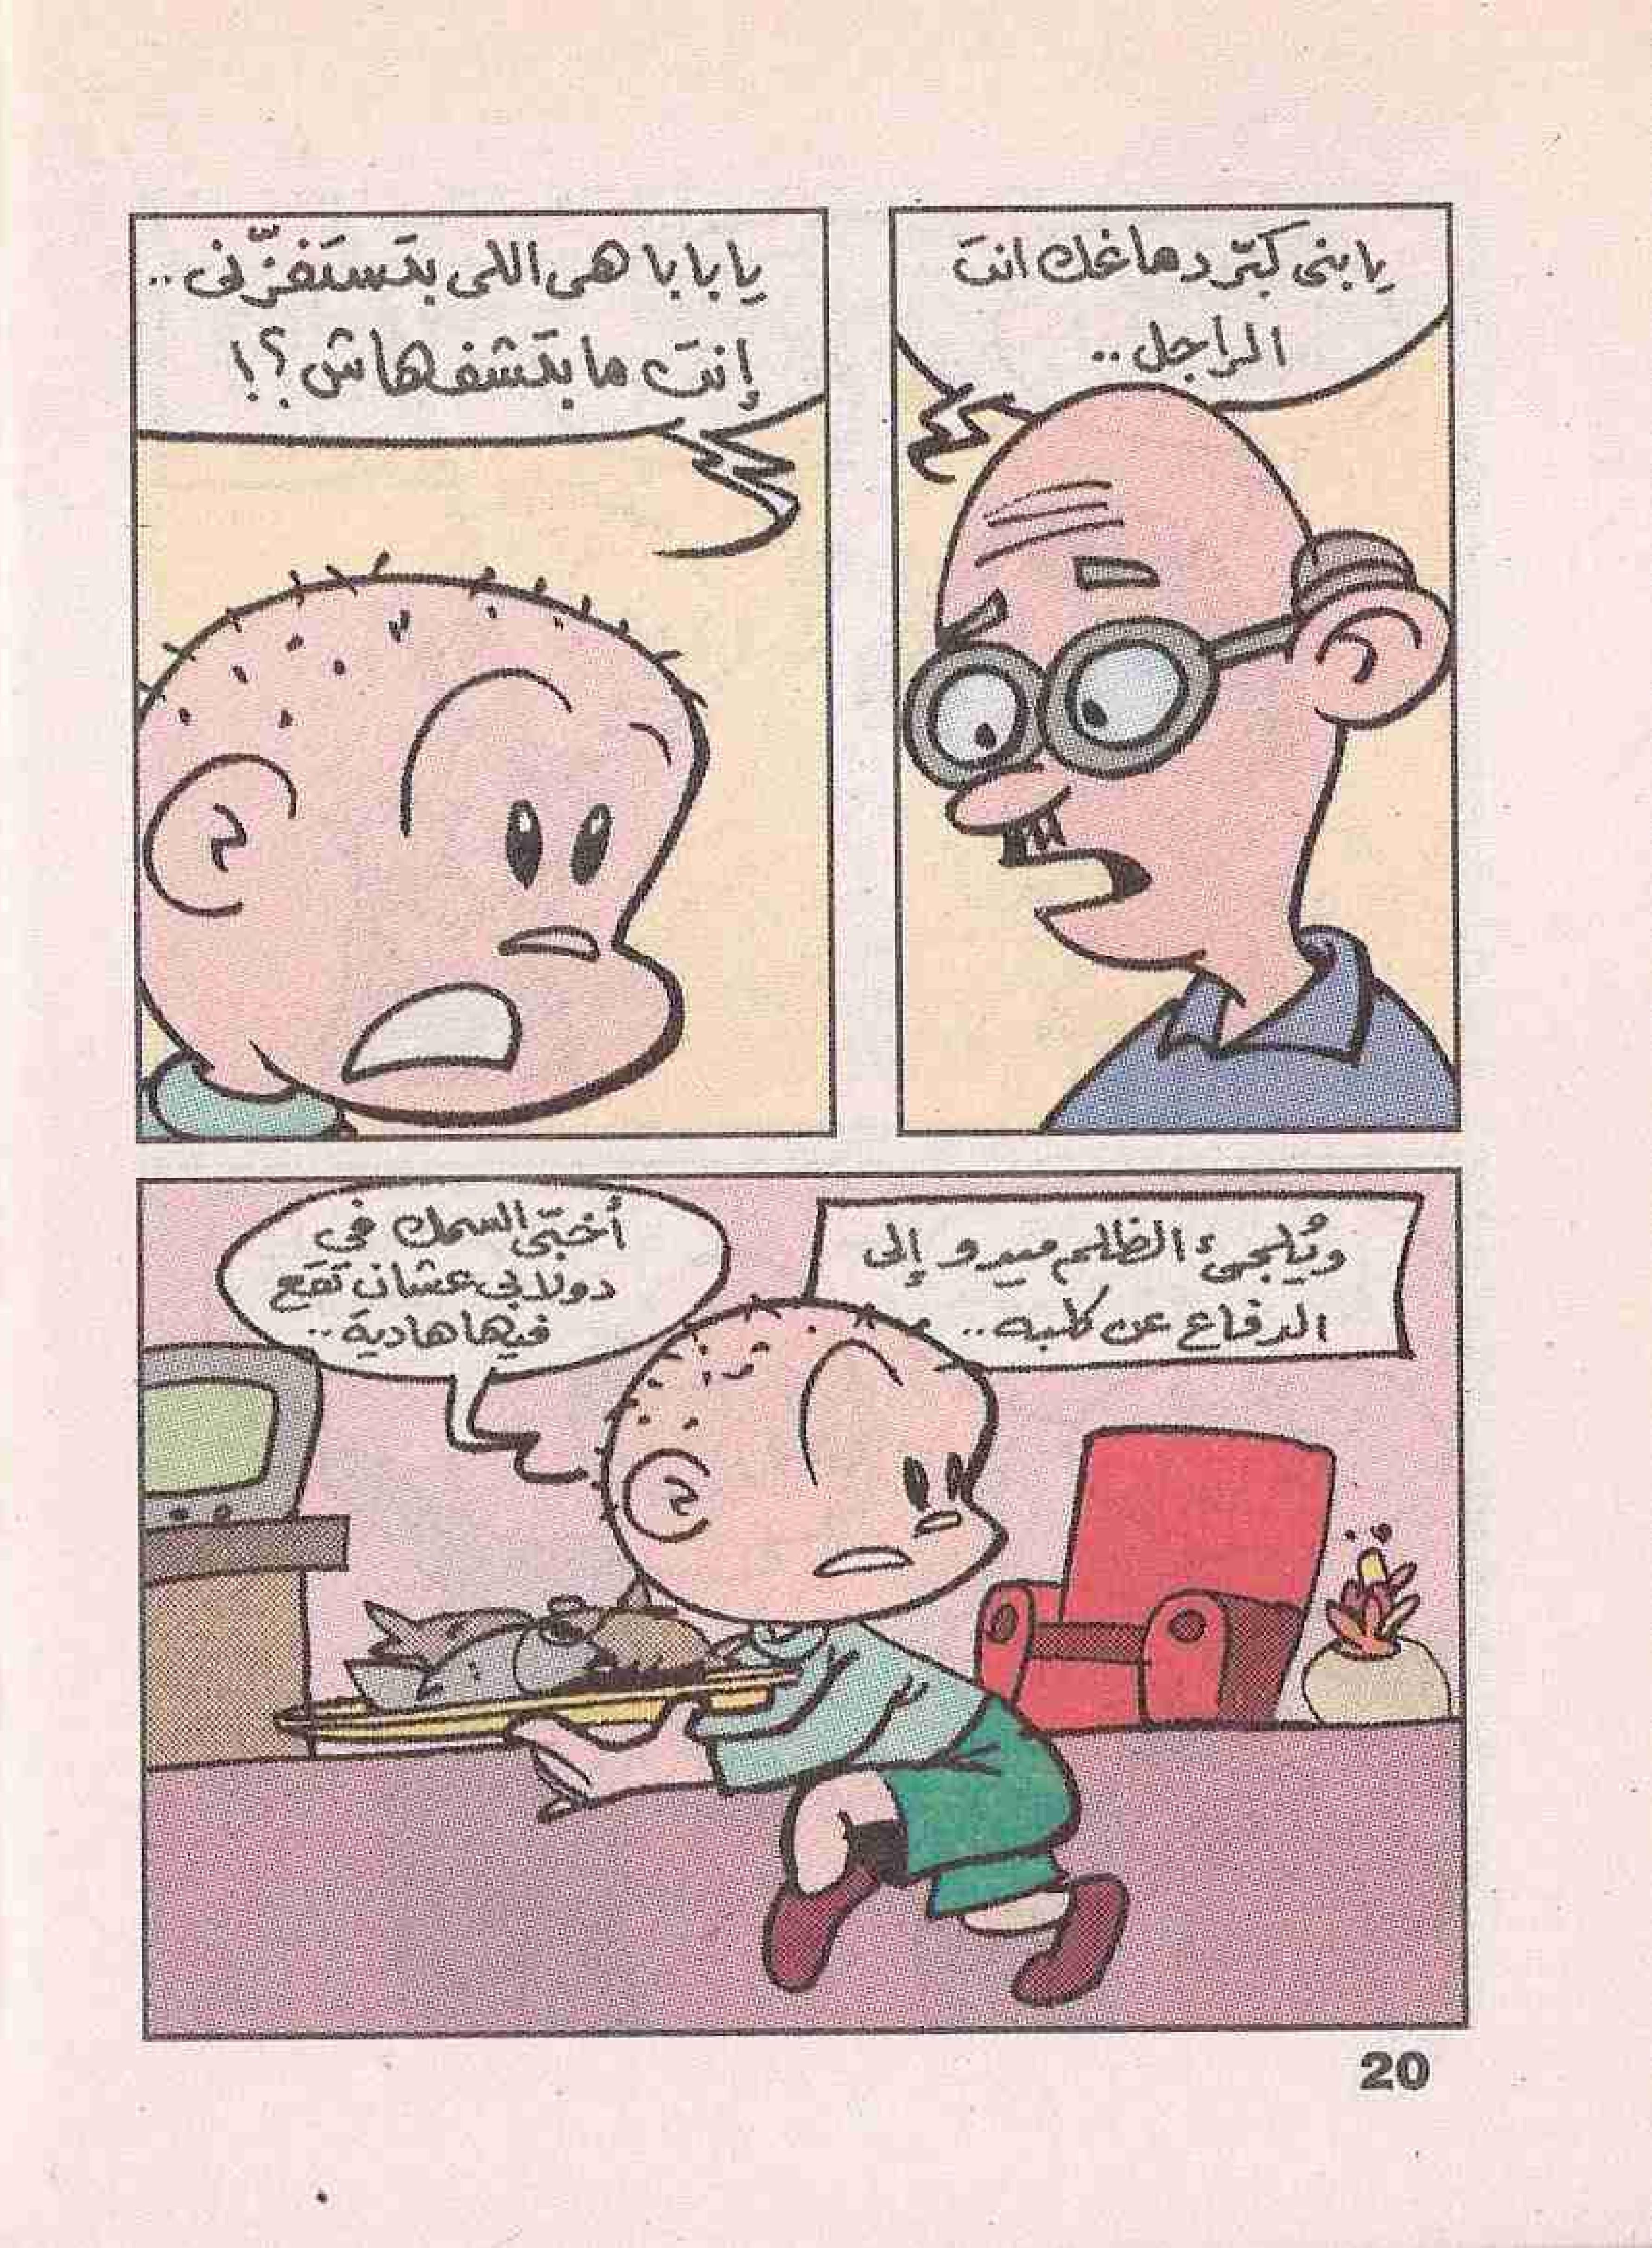 يا بنى كبّر دماغك انت
الراجل..
يا بابا هى اللى بتستفزّنى..
إنت ما بتشفهاش؟!
ويُلجئ الظالم ميدو إلى
الدفاع عن كلبه..
أخبّى السمك فى
دولابى عشان تقع
فيها هادية..
20